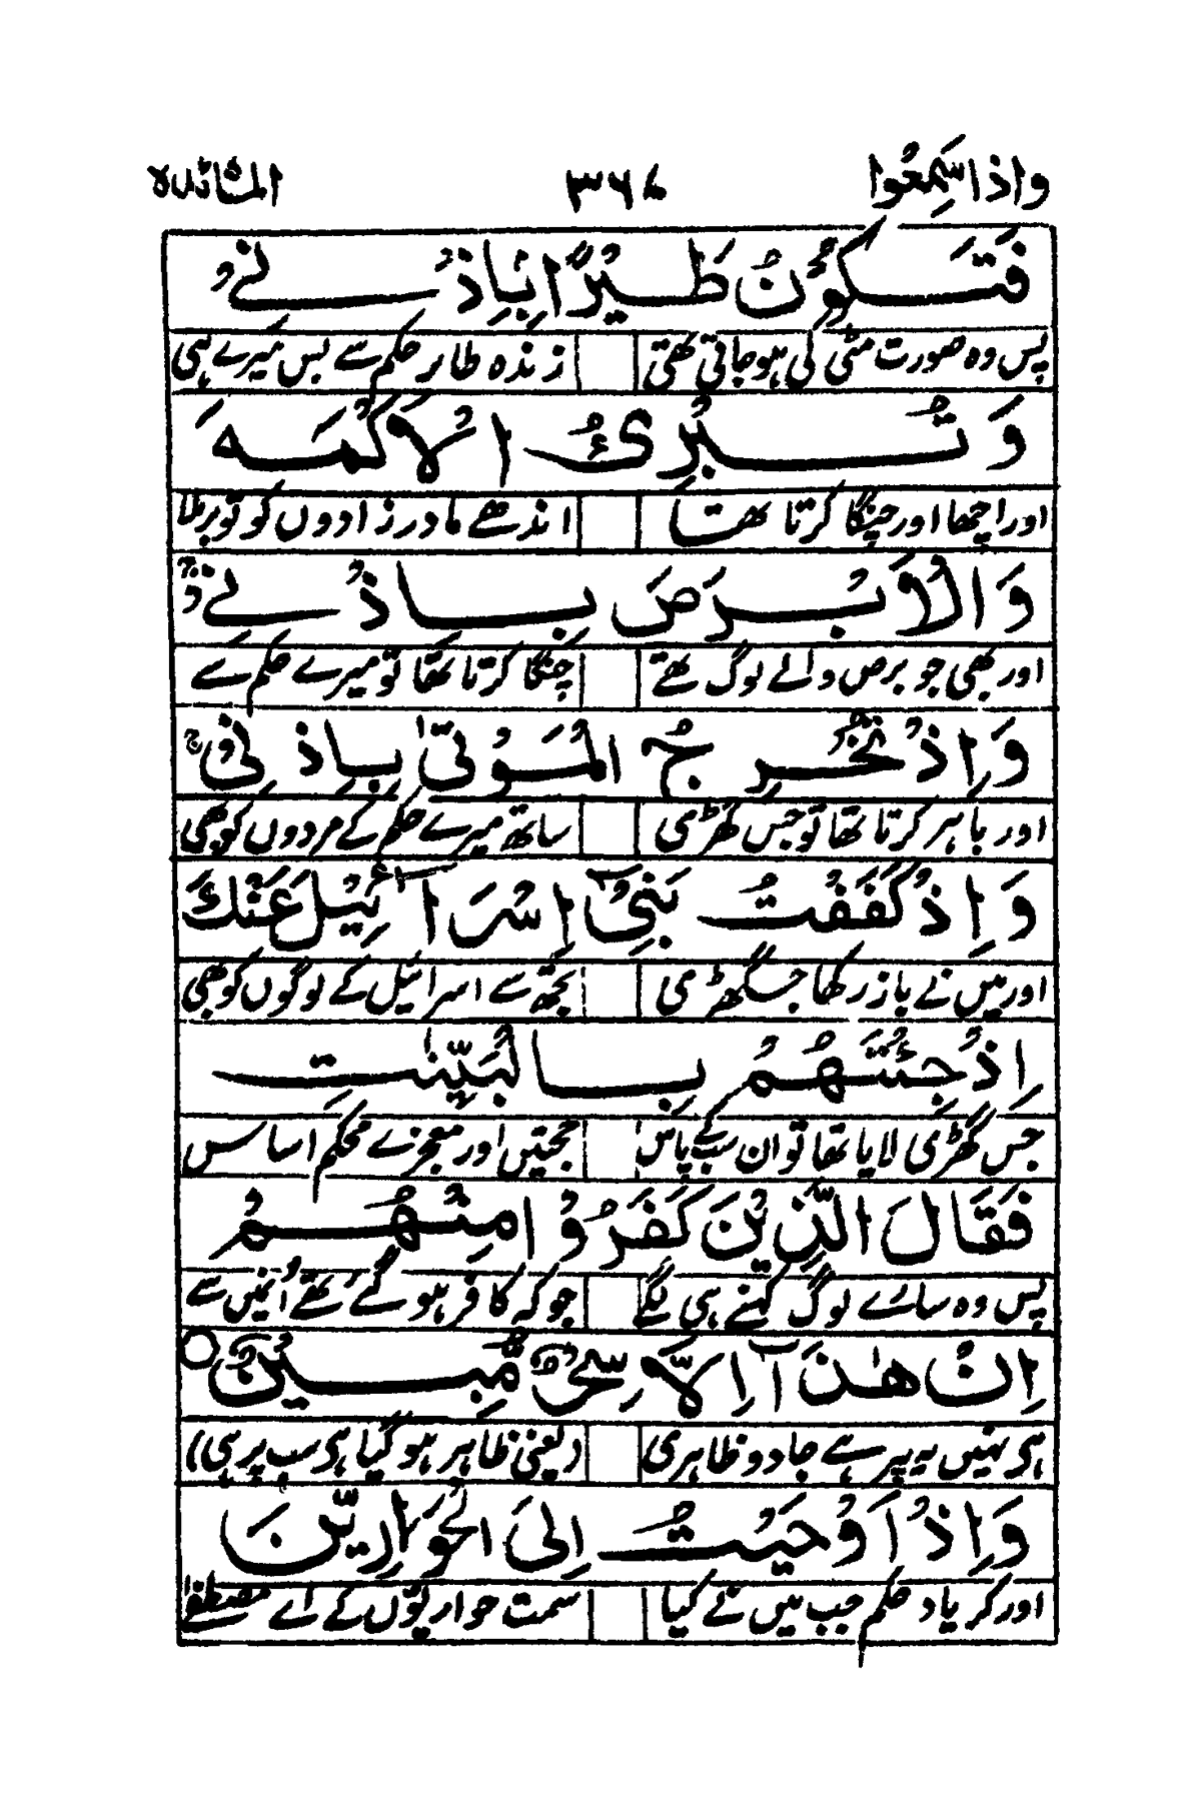 واذا سَمِعُوا ۳۶۷ المائدہ
فَتَكُوْنُ طَيْرًا بِاِذْنِيْ
پس وہ صورت مٹی کی ہو جاتی تھی زندہ طائر حکم سے بس میرے ہی
وَ تُبْرِئُ الْاَكْمَهَ
اور اچھا اور چنگا کرتا تھا اندھے مادر زادوں کو تو برملا
وَ الْاَبْرَصَ بِاِذْنِيْ ۚ
اور بھی جو برص والے لوگ تھے چنگا کرتا تھا تو میرے حکم سے
وَ اِذْ تُخْرِجُ الْمَوْتٰى بِاِذْنِيْ ۚ
اور باہر کرتا تھا تو جس گھڑی ساتھ میرے حکم کے مردوں کو بھی
وَ اِذْ كَفَفْتُ بَنِيْۤ اِسْرَآءِيْلَ عَنْكَ
اور میں نے باز رکھا جس گھڑی تجھ سے اسرائیل کے لوگوں کو بھی
اِذْ جِئْتَهُمْ بِالْبَيِّنٰتِ
جس گھڑی لایا تھا تو ان سب کے پاس حجتیں اور معجزے محکم اساس
فَقَالَ الَّذِيْنَ كَفَرُوْا مِنْهُمْ
پس وہ سارے لوگ کہنے ہی لگے جو کہ کافر ہو گئے تھے اُنمیں سے
اِنْ هٰذَاۤ اِلَّا سِحْرٌ مُّبِيْنٌ ○
ہی نہیں یہ پر ہے جادو ظاہری (یعنی ظاہر ہو گیا ہی سب پر ہی)
وَ اِذْ اَوْحَيْتُ اِلَى الْحَوَارِيّٖنَ
اور کر یاد حکم جب میں نے کیا سمت حواریوں کے اے مصطفےٰ